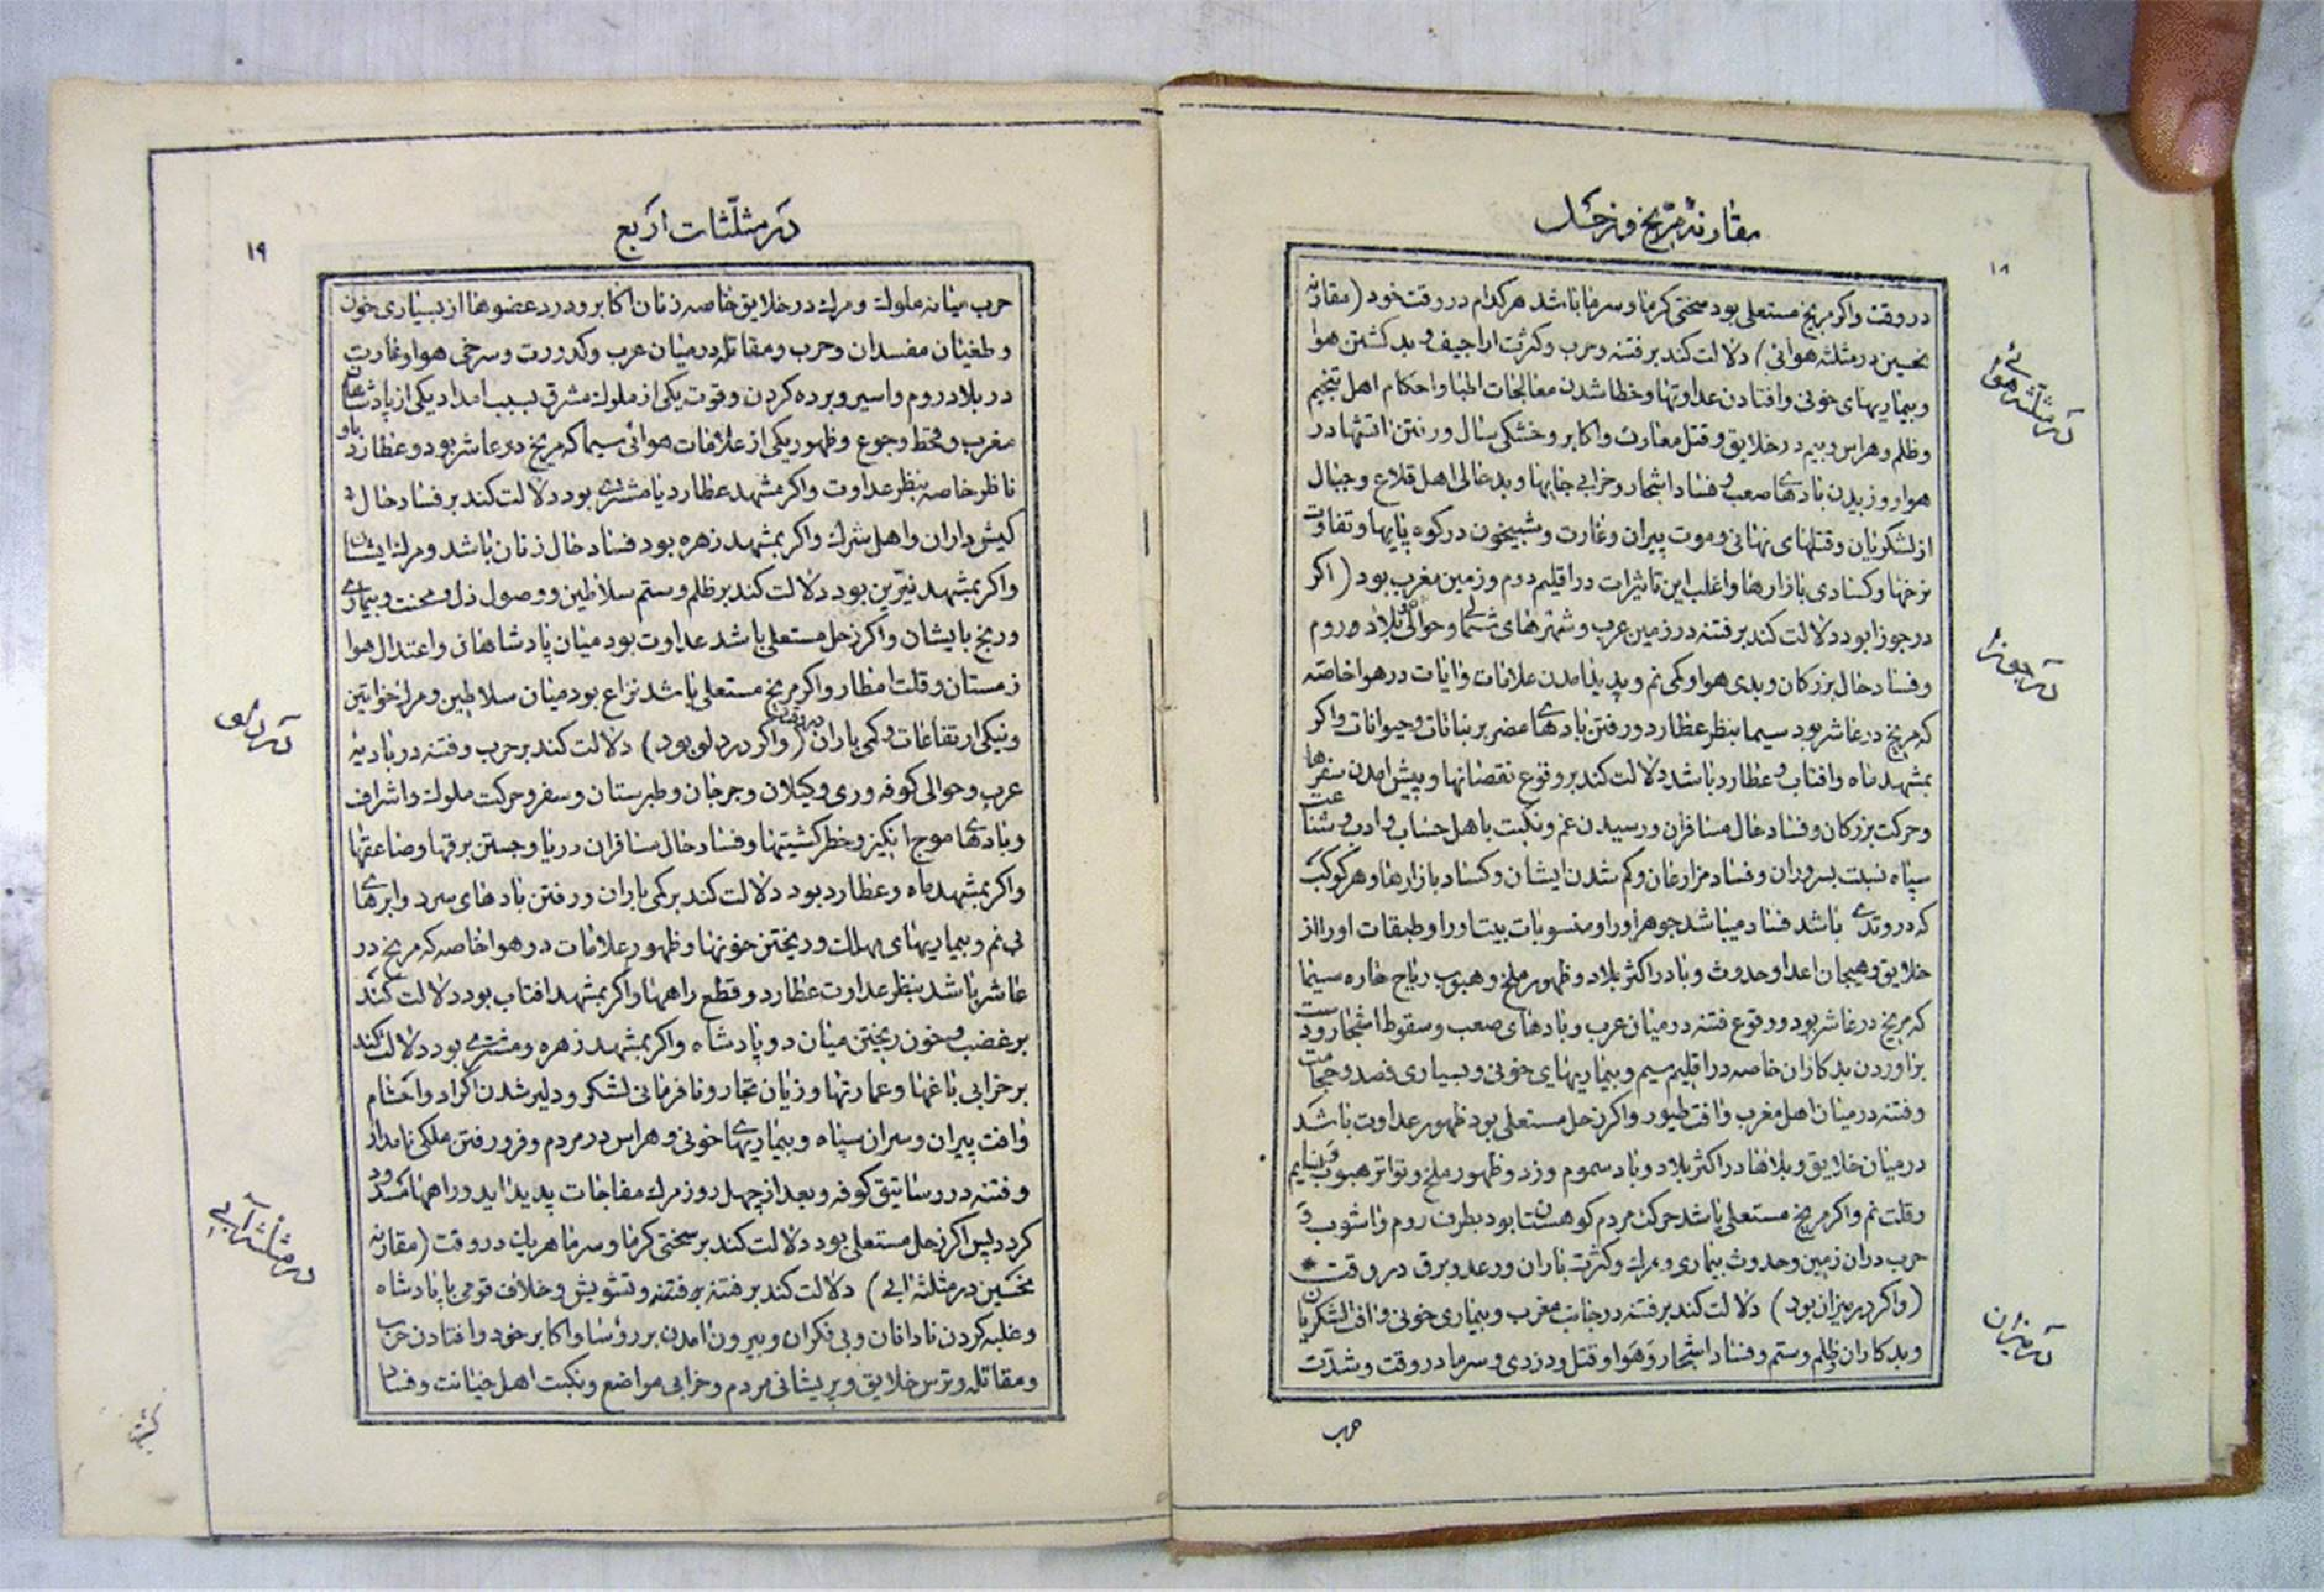 مقارنهٔ مرّیخ و زحل
۱۸
در وقت واکر مریخ مستعلی بود سختی کرما وسرما باشد هرکدام در وقت خود (مقارنهٔ
نحسین در مثلثه هوائی) دلالت کند بر فتنه وحرب وکثرت اراجیف و بد کشتن هوا
وبیماریهای خونی وافتادن عداوتها وخطا شدن معالجات اطبا واحکام اهل تنجیم
وظلم وهراس وبیم در خلایق وقتل معارف واکابر وخشکی سال ورفتن اتشها در
هوا ووزیدن بادهای صعب و فساد اشجار وخرابی جایها وبدحالی اهل قلاع وجبال
از لشکریان وقتلهای نهانی وموت پیران وغارت وشبیخون در کوه پایها وتفاوت
نرخها وکسادی بازارها واغلب این تاثیرات در اقلیم دوم وزمین مغرب بود (اکر
در جوزا بود دلالت کند بر فتنه در زمین عرب وشهرهای شمالی وحوالی بلاد روم
وفساد حال بزرکان وبدی هوا وکمی نم وپدید امدن علامات وایات در هوا خاصه
که مریخ در عاشر بود سیما بنظر عطارد ورفتن بادهای مضر بر نباتات وحیوانات واکر
بمشهد ماه وافتاب و عطارد باشد دلالت کند بر وقوع نقصانها وپیش امدن سفرها
وحرکت بزرکان وفساد حال مسافران ورسیدن غم ونکبت باهل حساب وادب وشناعت
سپاه نسبت بسروران وفساد مزارعان وکم شدن ایشان وکساد بازارها وهر کوکب
که در وتدی باشد فساد میباشد جوهر او را ومنسوبات بیت او را وطبقات او را از
خلایق وهیجان اعدا وحدوث وبا در اکثر بلاد وظهور ملخ وهبوب ریاح حاره سیما
که مریخ در عاشر بود ووقوع فتنه در میان عرب وبادهای صعب وسقوط اشجار ودست
براوردن بدکاران خاصه در اقلیم سیم وبیماریهای خونی وبسیاری فصد وحجامت
وفتنه در میان اهل مغرب وافت طیور واکر زحل مستعلی بود ظهور عداوت باشد
در میان خلایق وبلاها در اکثر بلاد وباد سموم وزد وظهور ملخ وتواتر هبوب نسایم
وقلت نم واکر مریخ مستعلی باشد حرکت مردم کوهستان بود بطرف روم واشوب و
حرب دران زمین وحدوث بیماری ومرک وکثرت باران ورعد وبرق در وقت *
(واکر در میزان بود) دلالت کند بر فتنه در جانب مغرب وبیماری خونی وافت لشکریان
وبدکاران وظلم وستم وفساد اشجار وهوا وقتل ودزدی وسرما در وقت وشدّت
حرب
در مثلثه هوائی
در جوزا
در میزان
در مثلّثات اربع
۱۹
حرب میانه ملوک ومرک در خلایق خاصه زنان اکابر ودرد عضوها از بسیاری خون
وطغیان مفسدان وحرب ومقاتله در میان عرب وکدورت وسرخی هوا وغارت
در بلاد روم واسیر وبرده کردن وقوت یکی از ملوک مشرق بسبب امداد یکی از پادشاهان
مغرب وقحط وجوع وظهور یکی از علامات هوائی سیما که مریخ در عاشر بود وعطارد باو
ناظر خاصه بنظر عداوت واکر بمشهد عطارد یا مشتری بود دلالت کند بر فساد حال و
کیش داران واهل شرک واکر بمشهد زهره بود فساد حال زنان باشد ومرک ایشان
واکر بمشهد نیّرین بود دلالت کند بر ظلم وستم سلاطین ووصول ذل ومحنت وبیماری
ورنج بایشان واکر زحل مستعلی باشد عداوت بود میان پادشاهان واعتدال هوا
زمستان وقلت امطار واکر مریخ مستعلی باشد نزاع بود میان سلاطین ومرک خواتین
ونیکی ارتفاعات وکمی باران در وقت (واکر در دلو بود) دلالت کند بر حرب وفتنه در بادیه
عرب وحوالی کوفه وری وکیلان وجرجان وطبرستان وسفر وحرکت ملوک واشراف
وبادهای موج انکیز وخطر کشتیها وفساد حال مسافران دریا وجستن برقها وصاعقها
واکر بمشهد ماه وعطارد بود دلالت کند بر کمی باران ورفتن بادهای سرد وابرهای
بی نم وبیماریهای مهلک وریختن خونها وظهور علامات در هوا خاصه که مریخ در
عاشر باشد بنظر عداوت عطارد وقطع راهها واکر بمشهد افتاب بود دلالت کند
بر غضب وخون ریختن میان دو پادشاه واکر بمشهد زهره ومشتری بود دلالت کند
بر خرابی باغها وعمارتها وزیان تجار ونافرمانی لشکر ودلیر شدن اکراد واحشام
وافت پیران وسران سپاه وبیماریهای خونی وهراس در مردم وفرو رفتن ملکی نامدار
وفتنه در روستایق کوفه وبعد از چهل روز مرک مفاجات پدید اید وراهها مسدود
کردد پس اکر زحل مستعلی بود دلالت کند بر سختی کرما وسرما هر یک در وقت (مقارنهٔ
نحسین در مثلثه ابی) دلالت کند بر فتنه وتشویش وخلاف قومی با پادشاه
وغلبه کردن نادانان وبی فکران وبیرون امدن بر رؤسا واکابر خود وافتادن حرب
ومقاتله وترس خلایق وپریشانی مردم وخرابی مواضع ونکبت اهل خیانت وفساد
در دلو
در مثلثه آبی